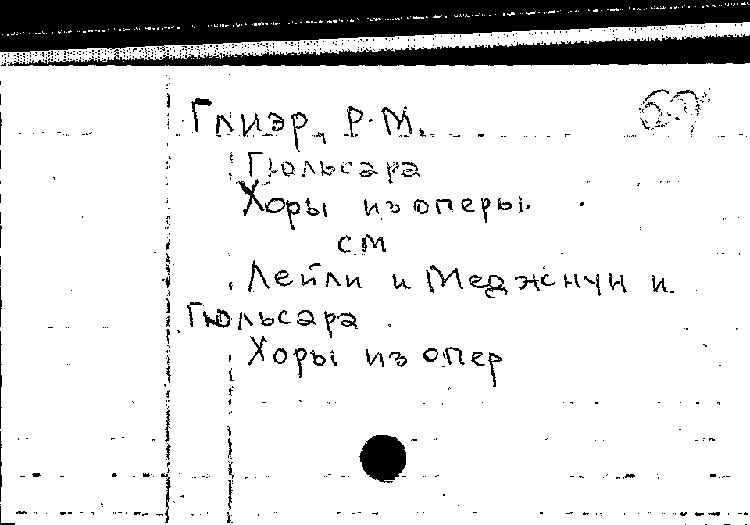 Глиэр, Р.М.
Гюльсара
Хоры из оперы.
см
Лейли и Меджнун и
Гюльсара.
Хоры из опер